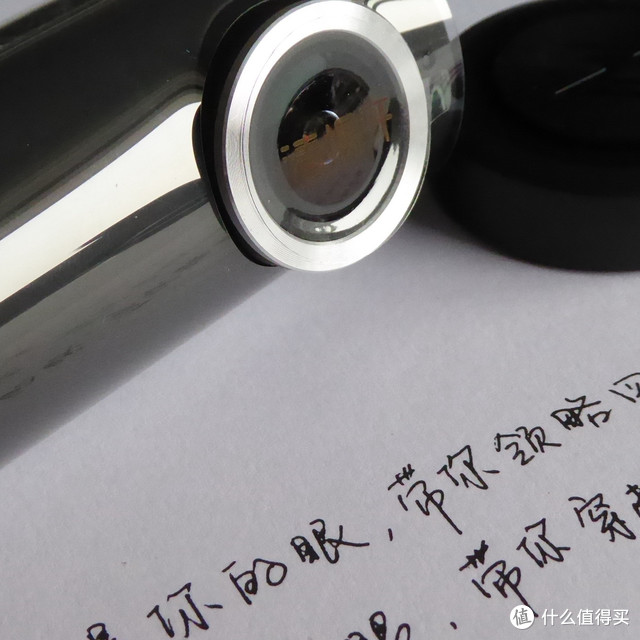 是你的眼，带你领略风
眼，带你穿越
值 什么值得买